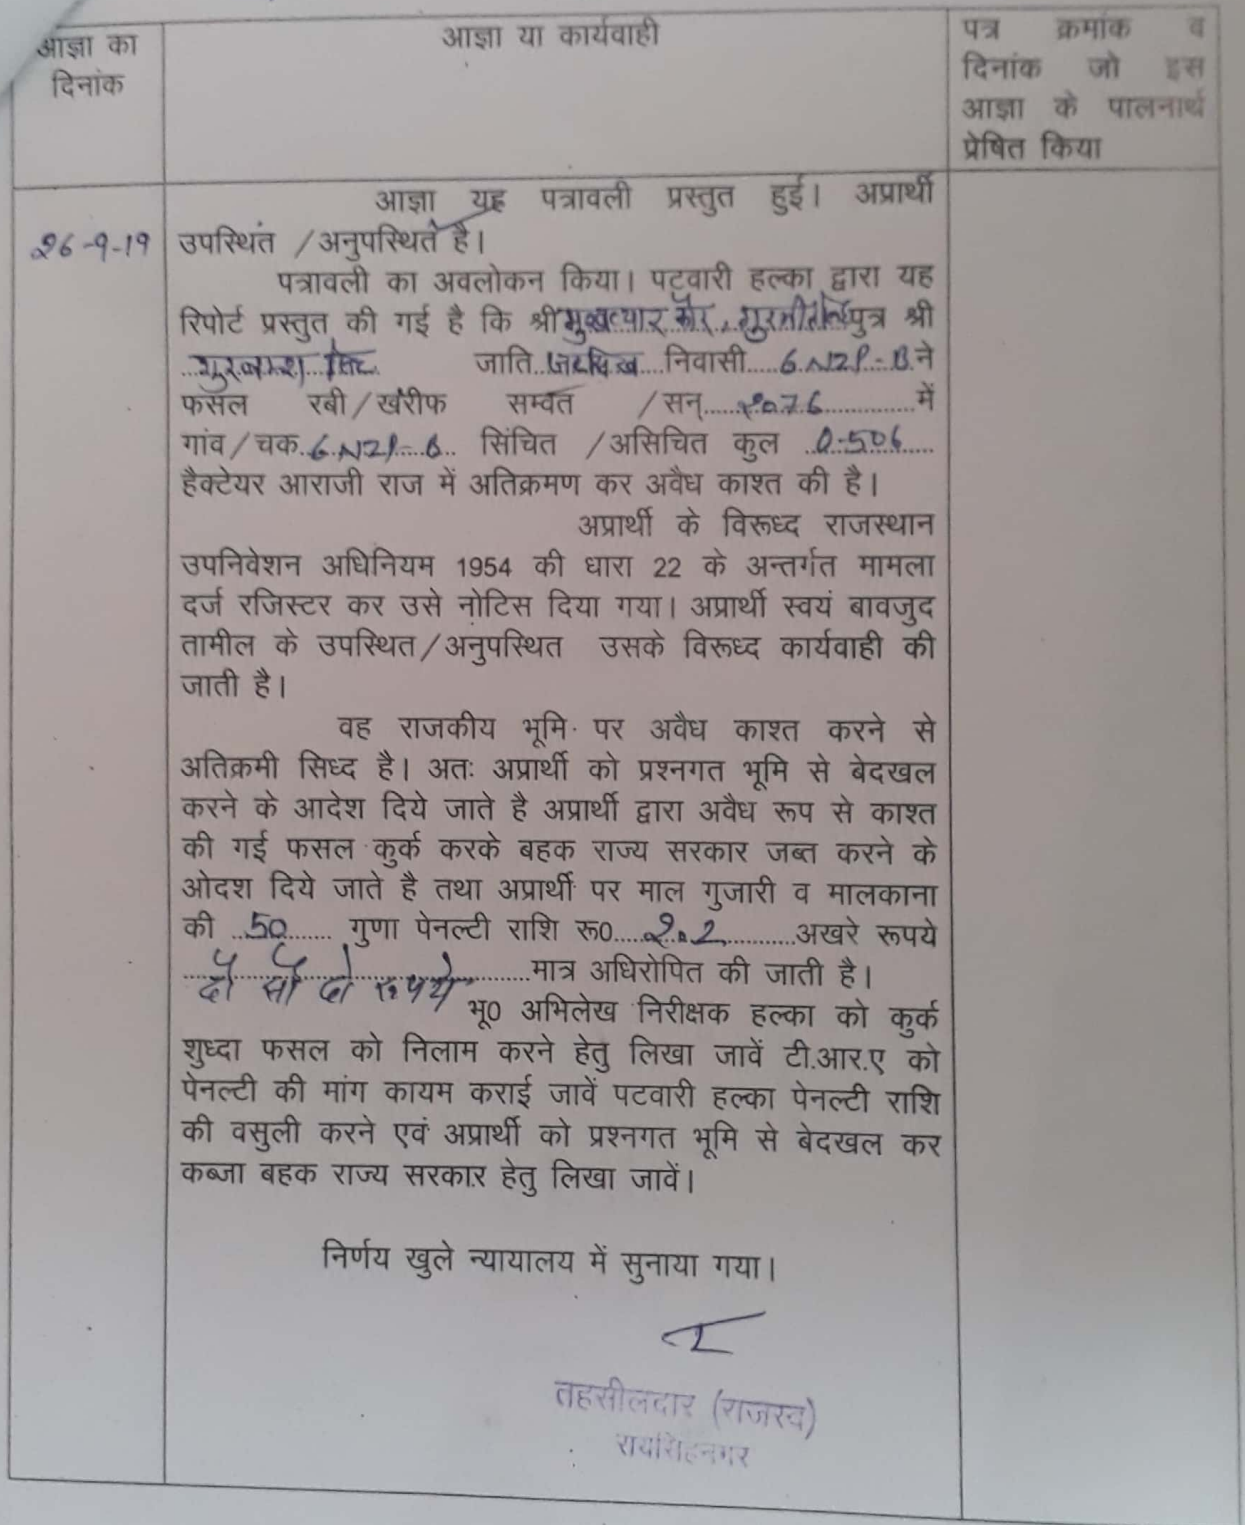 आज्ञा का
दिनांक
आज्ञा या कार्यवाही
पत्र क्रमांक व
दिनांक जो इस
आज्ञा के पालनार्थ
प्रेषित किया
26-9-19
आज्ञा यह पत्रावली प्रस्तुत हुई। अप्रार्थी
उपस्थित /अनुपस्थित है।
पत्रावली का अवलोकन किया। पटवारी हल्का द्वारा यह
रिपोर्ट प्रस्तुत की गई है कि श्री कौर, पुत्र श्री
जाति जटसिख निवासी 6 NZP-B ने
फसल रबी/खरीफ सम्वत /सन् 2076 में
गांव/चक 6 NZP-B सिंचित /असिचित कुल 0.506
हैक्टेयर आराजी राज में अतिक्रमण कर अवैध काश्त की है।
अप्रार्थी के विरूध्द राजस्थान
उपनिवेशन अधिनियम 1954 की धारा 22 के अन्तर्गत मामला
दर्ज रजिस्टर कर उसे नोटिस दिया गया। अप्रार्थी स्वयं बावजुद
तामील के उपस्थित/अनुपस्थित उसके विरूध्द कार्यवाही की
जाती है।
वह राजकीय भूमि पर अवैध काश्त करने से
अतिक्रमी सिध्द है। अतः अप्रार्थी को प्रश्नगत भूमि से बेदखल
करने के आदेश दिये जाते है अप्रार्थी द्वारा अवैध रूप से काश्त
की गई फसल कुर्क करके बहक राज्य सरकार जब्त करने के
ओदश दिये जाते है तथा अप्रार्थी पर माल गुजारी व मालकाना
की 50 गुणा पेनल्टी राशि रू0 202 अखरे रूपये
दो सौ दो रुपये मात्र अधिरोपित की जाती है।
भू0 अभिलेख निरीक्षक हल्का को कुर्क
शुध्दा फसल को निलाम करने हेतु लिखा जावें टी.आर.ए को
पेनल्टी की मांग कायम कराई जावें पटवारी हल्का पेनल्टी राशि
की वसुली करने एवं अप्रार्थी को प्रश्नगत भूमि से बेदखल कर
कब्जा बहक राज्य सरकार हेतु लिखा जावें।
निर्णय खुले न्यायालय में सुनाया गया।
तहसीलदार (राजस्व)
रायसिंहनगर